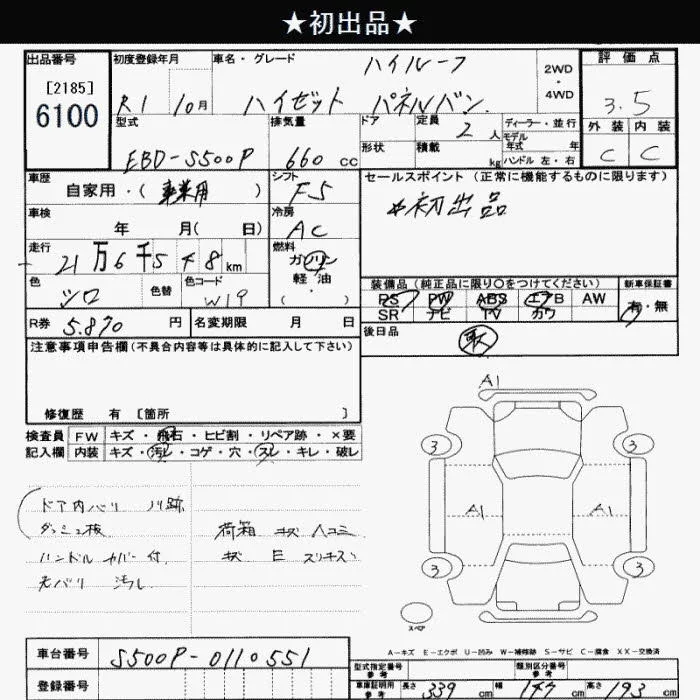 ★初出品★
出品番号
[2185]
6100
初度登録年月
R1 10月
車名・グレード
ハイルーフ
ハイゼット パネルバン
2WD
・
4WD
評価点
3.5
外装 内装
C C
型式
EBD-S500P
排気量
660 cc
ドア
形状
定員
2人
積載
kg
ディーラー・並行
モデル
年式 年
ハンドル 左・右
車歴
自家用・( 事業用 )
シフト
F5
セールスポイント (正常に機能するものに限ります)
初出品
車検
年 月( 日)
冷房
AC
走行
21万6千548km
燃料
ガソリン
軽油
・
( )
色
シロ
色替
色コード
W19
装備品 (純正品に限り○をつけてください)
PS PW ABS エアB AW
SR ナビ TV カワ
新車保証書
有・無
R券 5.870 円
名変期限 月 日
後日品
注意事項申告欄(不具合内容等は具体的に記入して下さい)
修復歴 有 [箇所 ]
検査員
記入欄
FW キズ・飛石・ヒビ割・リペア跡・×要
内装 キズ・汚レ・コゲ・穴・スレ・キレ・破レ
ドア内バリ ノリ跡
ダッシュ板
ハンドル カバー付
天バリ 汚レ
荷箱 キズ ハコミ
キズ E スリキズ
A1
3 3
A1 A1
3 3
スペア
A-キズ E-エクボ U-凹み W-補修跡 S-サビ C-腐食 XX-交換済
車台番号 S500P-0110551
登録番号
型式指定番号
参考
類別区分番号
参考
車庫証明用
参考
長さ 339 cm 幅 147 cm 高さ 193 cm